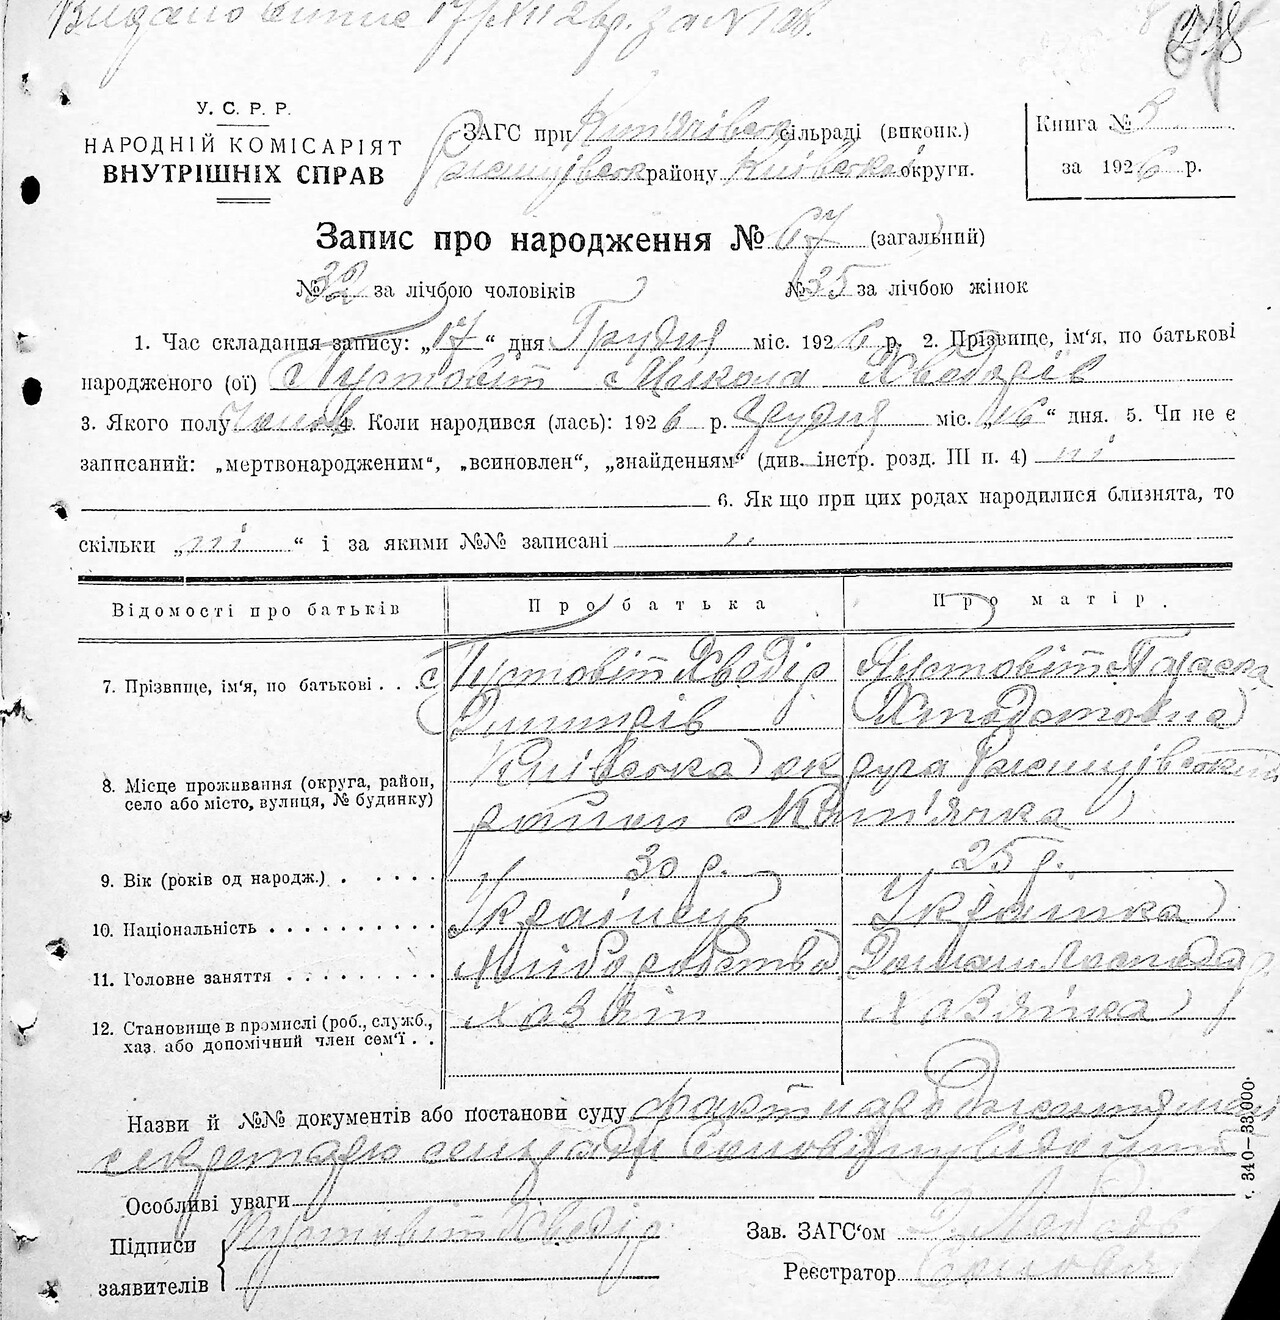 Видано
У. С. Р. Р.
НАРОДНІЙ КОМІСАРІЯТ
ВНУТРІШНІХ СПРАВ
ЗАГС при сільраді (виконк.)
району Київської округи.
Книга № 3
за 1926 р.
Запис про народження № 67 (загальний)
№ 32 за лічбою чоловіків № 35 за лічбою жінок
1. Час складання запису: „17“ дня Грудня міс. 1926 р. 2. Прізвище, ім'я, по батькові
народженого (ої) Пустовіт Микола Хведорів
3. Якого полу Чолов 4. Коли народився (лась): 1926 р. Грудня міс. „16“ дня. 5. Чи не є
записаний: „мертвонародженим“, „всиновлен“, „знайденням“ (див. інстр. розд. III п. 4) ні
6. Як що при цих родах народилися близнята, то
скільки „ні“ і за якими №№ записані „
Відомості про батьків Про батька Про матір.
7. Прізвище, ім'я, по батькові . . . Пустовіт Хведір Пустовіт Параска
Дмитрів
8. Місце проживання (округа, район, село або місто, вулиця, № будинку) Київська округа
район
9. Вік (років од народж.) . . . . . . 30 р. 25 р.
10. Національність . . . . . . . . . . Українець Українка
11. Головне заняття . . . . . . . . Хліборобство Домашн господар
12. Становище в промислі (роб., служб., хаз. або допомічний член сем'ї . . Хазяїн Хазяйка
Назви й №№ документів або постанови суду факт народження
секретарю сельради
Особливі уваги
Підписи заявителів Пустовіт Хведір
Зав. ЗАГС'ом
Реєстратор
г. 340—33.000.